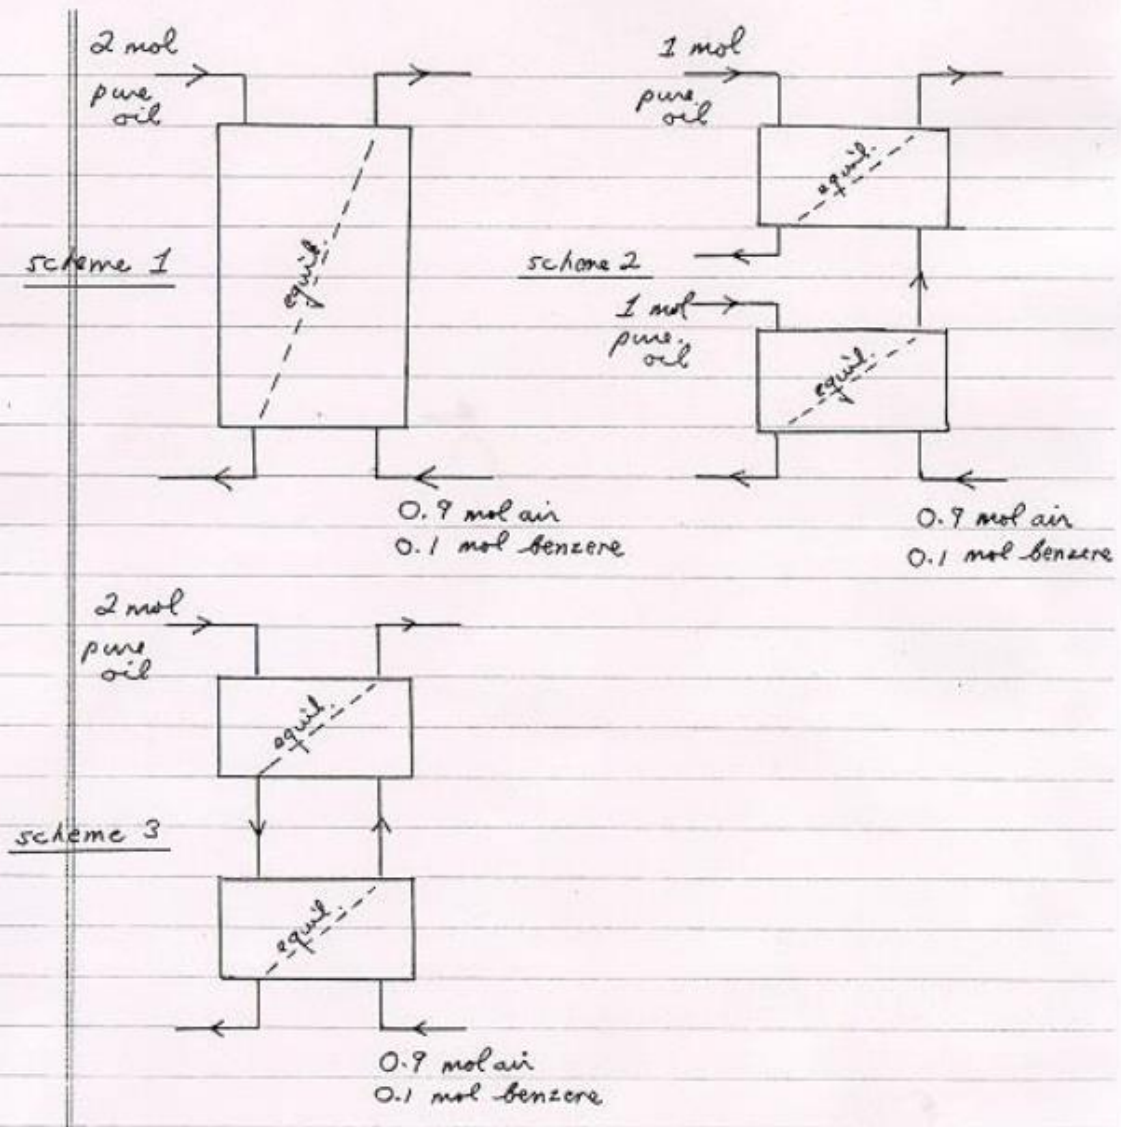 2 mol
pure
oil
equil.
scheme 1
0.9 mol air
0.1 mol benzere
1 mol
pure
oil
equil.
scheme 2
1 mol
pure.
oil
equil.
0.9 mol air
0.1 mol benzere
2 mol
pure
oil
equil.
scheme 3
equil.
0.9 mol air
0.1 mol benzere